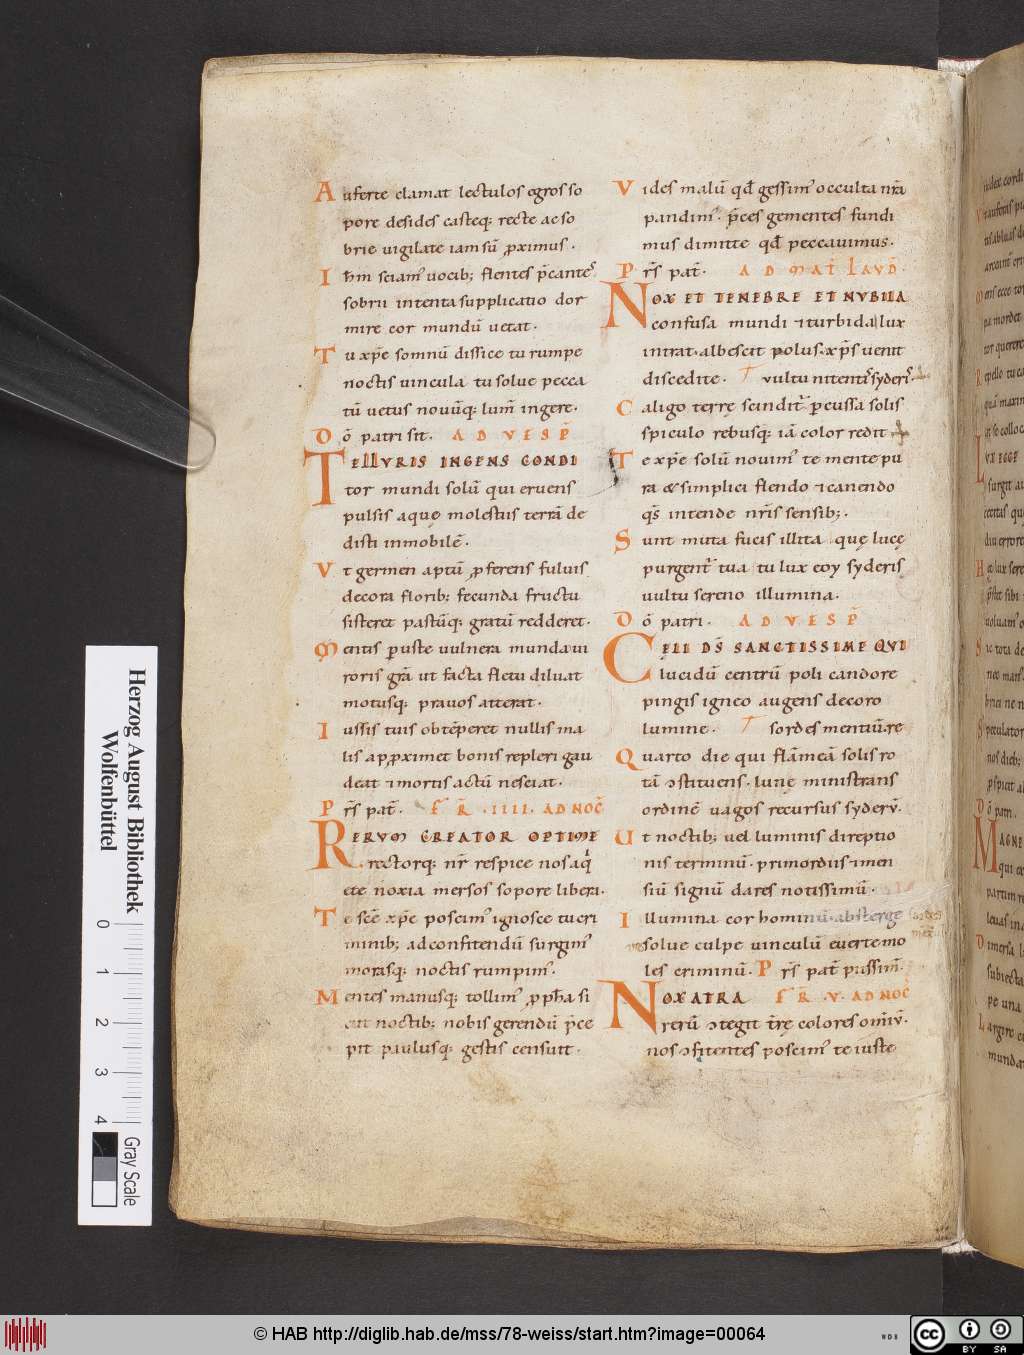 Auferte clamat lectulos ęgros so
pore desides casteq: recte ac so
brie uigilate iam sū p̄ximus.
Ihm̄ sciam' uocib; flentes p̄cantes
sobrii intenta supplicatio dor
mire cor mundū uetat.
Tu xp̄e somnū dissice tu rumpe
noctis uincula tu solue pecca
tū uetus nouūq: lum̄ ingere.
Dō patri sit. AD VESP̄
TELLVRIS INGENS CONDI
tor mundi solū qui eruens
pulsis aquę molestiis terrā de
disti inmobilē.
Vt germen aptū p̄ferens fuluis
decora florib; fecunda fructu
sisteret pastūq: gratū redderet.
Mentis p̱ustę uulnera munda ui
roris grā ut facta fletu diluat
motusq: prauos atterat.
Iussis tuis obtēperet nullis ma
lis app̱ximet bonis repleri gau
deat ⁊ mortis actū nesciat.
Pr̄s pat̄. FR̄. IIII. AD NOC̄
RERVM CREATOR OPTIME
rectorq: nr̄ respice nos aq́
ete noxia mersos sopore liberi.
Te scē xp̄e poscim' ignosce tu cri
minib; ad confitendū surgim'
morasq: noctis rumpim'.
Mentes manusq: tollim' p̄ph̄a si
cut noctib; nobis gerendū p̄ce
pit paulusq: gestis censuit.
Vides malū qd̄ gessim' occulta nr̄a
pandim' p̄ces gementes fundi
mus dimitte qd̄ peccauimus.
Pr̄s pat̄. AD MAT̄ LAVD̄.
NOX ET TENEBRE ET NVBILA
confusa mundi ⁊ turbida lux
intrat. albescit polus. xp̄s uenit
discedite. T uultu nitenti syderis.
Caligo terrę scinditr̄ p̱cussa solis
spiculo rebusq: iā color redit
Te xp̄e solū nouim' te mente pu
ra & simplici flendo ⁊ canendo
qs̄ intende nr̄is sensib;.
Sunt multa fucis illita quę lucę
purgentr̄ tua tu lux eoy syderis
uultu sereno illumina.
Dō patri. AD VESP̄
CĘLI DS̄ SANCTISSIME QVI
lucidū centrū poli candore
pingis igneo augens decoro
lumine. T sordes mentiū. re
Quarto die qui flāmeā solis ro
tā ɔstituens. lunę ministrans
ordinē uagos recursus syderū.
Ut noctib; uel luminis direptio
nis terminū. primordiis men
siū signū dares notissimū.
Illumina cor hominū absterge
sordes
mentiū
resolue culpę uinculū euerte mo
les criminū. Pr̄s pat̄ piissim̄.
NOX ATRA FR̄. V. AD NOC̄
rerū ɔtegit t̄rę colores om̄iū.
nos ɔfitentes poscim' te iuste
Herzog August Bibliothek
Wolfenbüttel
0 1 2 3 4
Gray Scale
© HAB http://diglib.hab.de/mss/78-weiss/start.htm?image=00064
WDB
cc BY SA